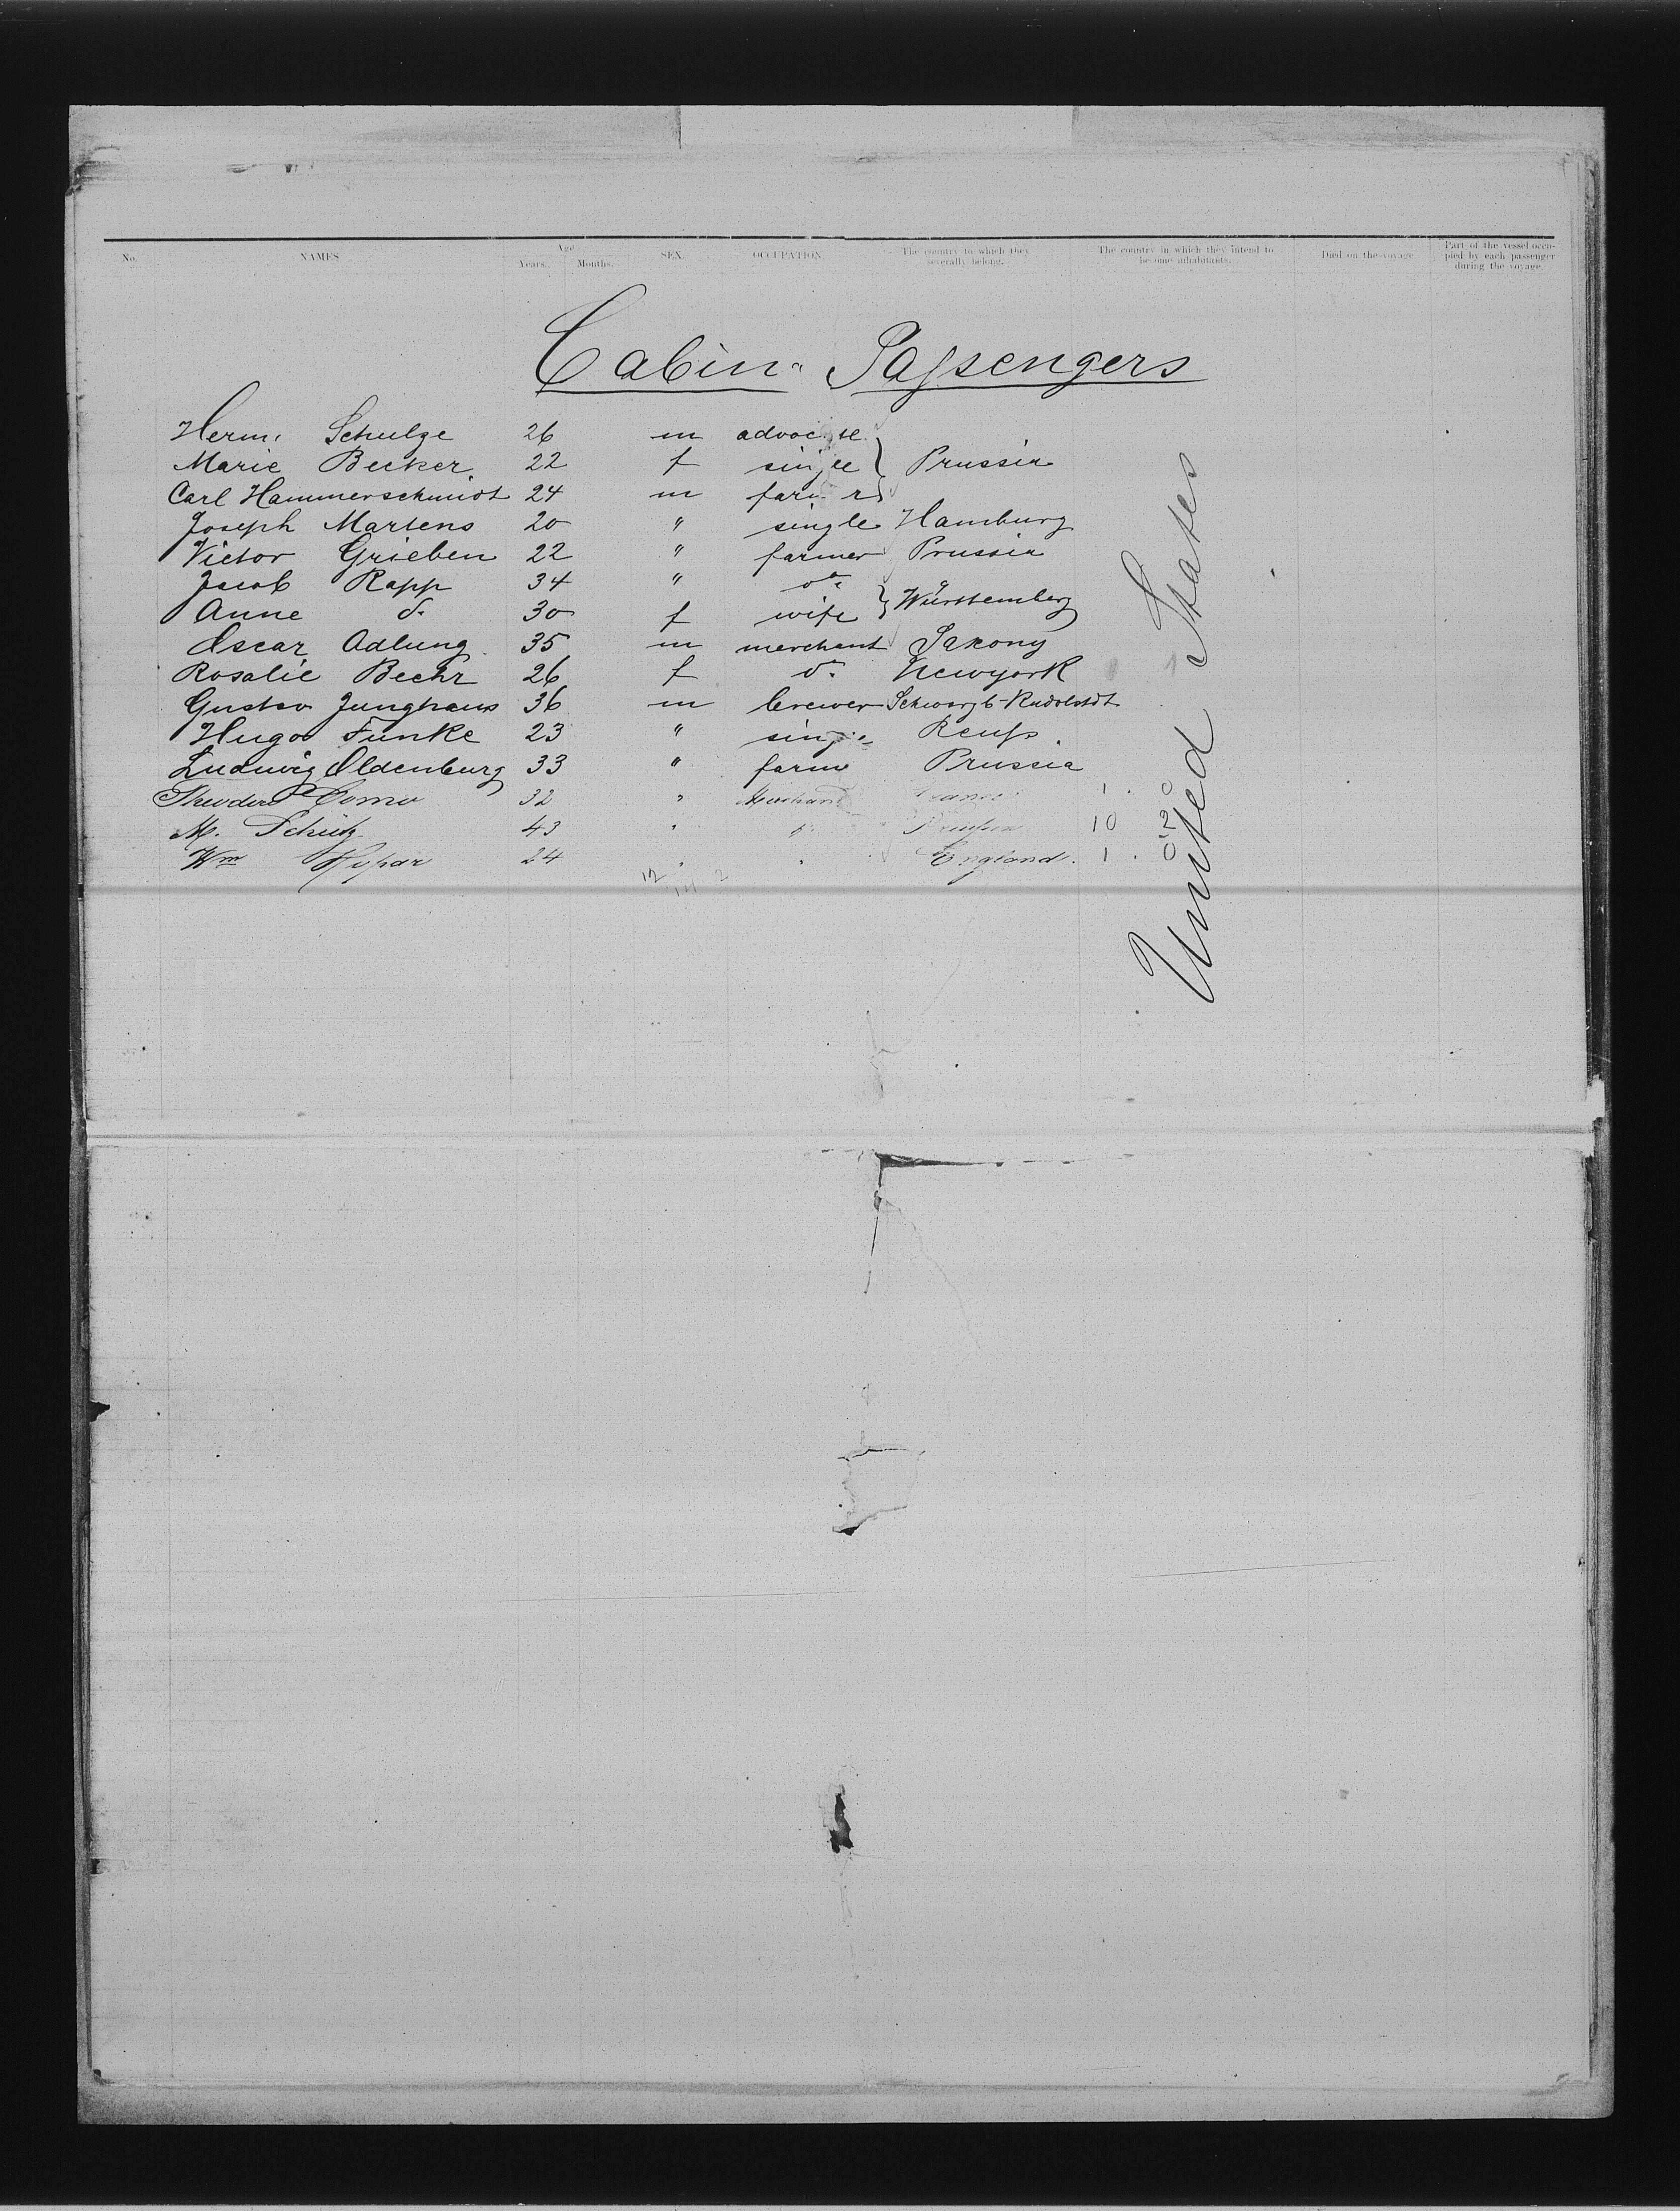 No. NAMES Age Years. Months. SEX OCCUPATION The country to which they severally belong. The country in which they intend to become inhabitants. Died on the voyage Part of the vessel occupied by each passenger during the voyage.
Cabin-Passengers
Herm. Schulze 26 m advocate
Marie Becker 22 f single } Prussia
Carl Hammerschmidt 24 m farmer
Joseph Martens 20 " single Hamburg
Victor Grieben 22 " farmer Prussia
Jacob Rapp 34 " do
Anne do 30 f wife } Württemberg
Oscar Adlung 35 m merchant Saxony
Rosalie Beehr 26 f do Newyork
Gustav Junghans 36 m brewer Schwarzb-Rudolstdt
Hugo Funke 23 " single Reuss
Ludwig Oldenburg 33 " farm Prussia
Theodore 32 " Merchant 1
M. Schütz 43 " 10
Wm 24 " " England 1
12 14 2
United States